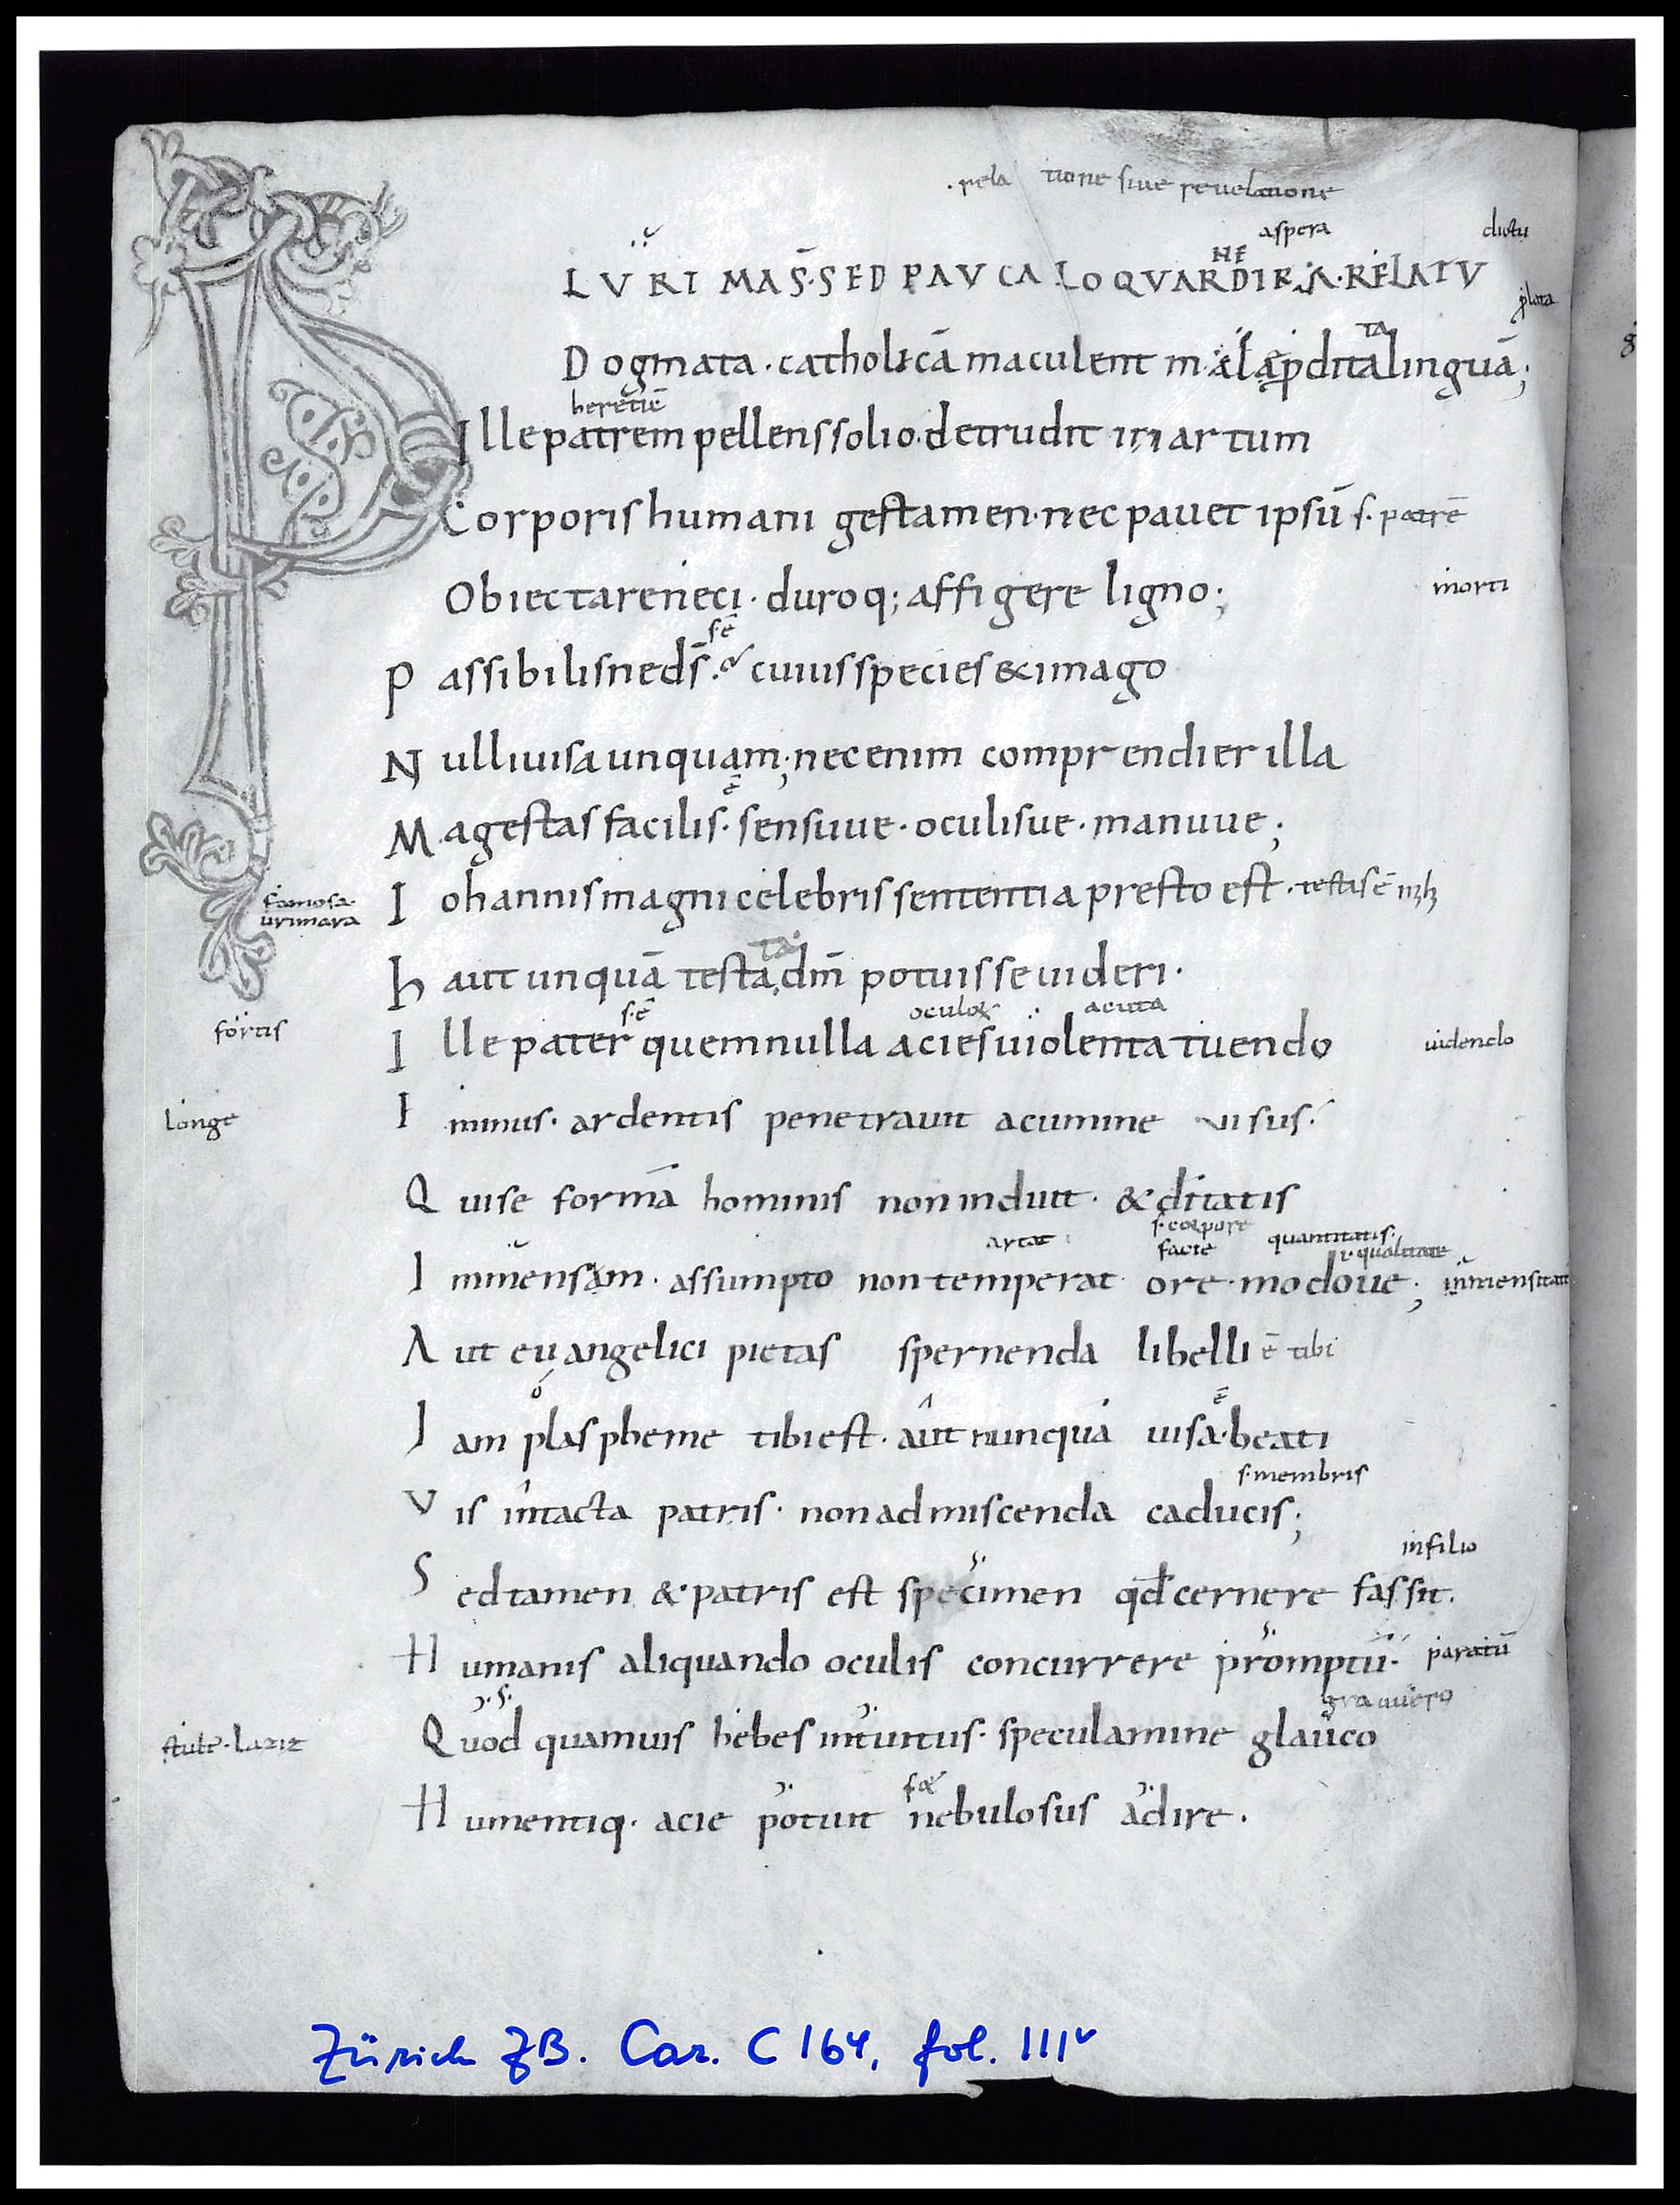 . p̱ela tione siue reuelatione
aspera dictu
LVRI MAS̄· SED PAVCA LOQVAR NE DIRA· RELATV
plata
Dogmata · catholicā maculent male ꝓdita linguā;
heretic̄
Ille patrem pellens solio· detrudit in artum
Corporis humani gestamen· nec pauet ipsū s· patrē
Obiectare neci · duroq; affigere ligno; morti
s· ē
Passibilis ne ds̄ · cuius species & imago
Nulli uisa unquam; nec enim comprendier illa
ē
Magestas facilis· sensuue · oculisue · manuue;
famosa·
urimara
Iohannis magni celebris sententia presto est · testis ē
ta
Haut unquā testa dm̄ potuisse uideri ·
fortis s· ē acuta
Ille pater quem nulla acies uiolenta tuendo uidendo
longe
Iminus · ardentis penetrauit acumine uisus·
Qui se formā hominis non induit · & ditatis
s· corpore
artat facie quantitatis·
qualitate
Inmensam · assumpto non temperat ore · modoue;
Aut euangelici pietas spernenda libelli ē tibi
ó ē
Jam plaspheme tibi est · aut nunquā uisa · beati
s· membris
Vis intacta patris · non admiscenda caducis;
in filio
Sed tamen & patris est specimen qđ cernere fas sit.
Humanis aliquando oculis concurrere promptū· paratū
Quod quamuis hebes intuitus· speculamine glauco
Humentiq· acie potuit nebulosus adire ·
Zürich ZB. Car. C 164, fol. IIIv